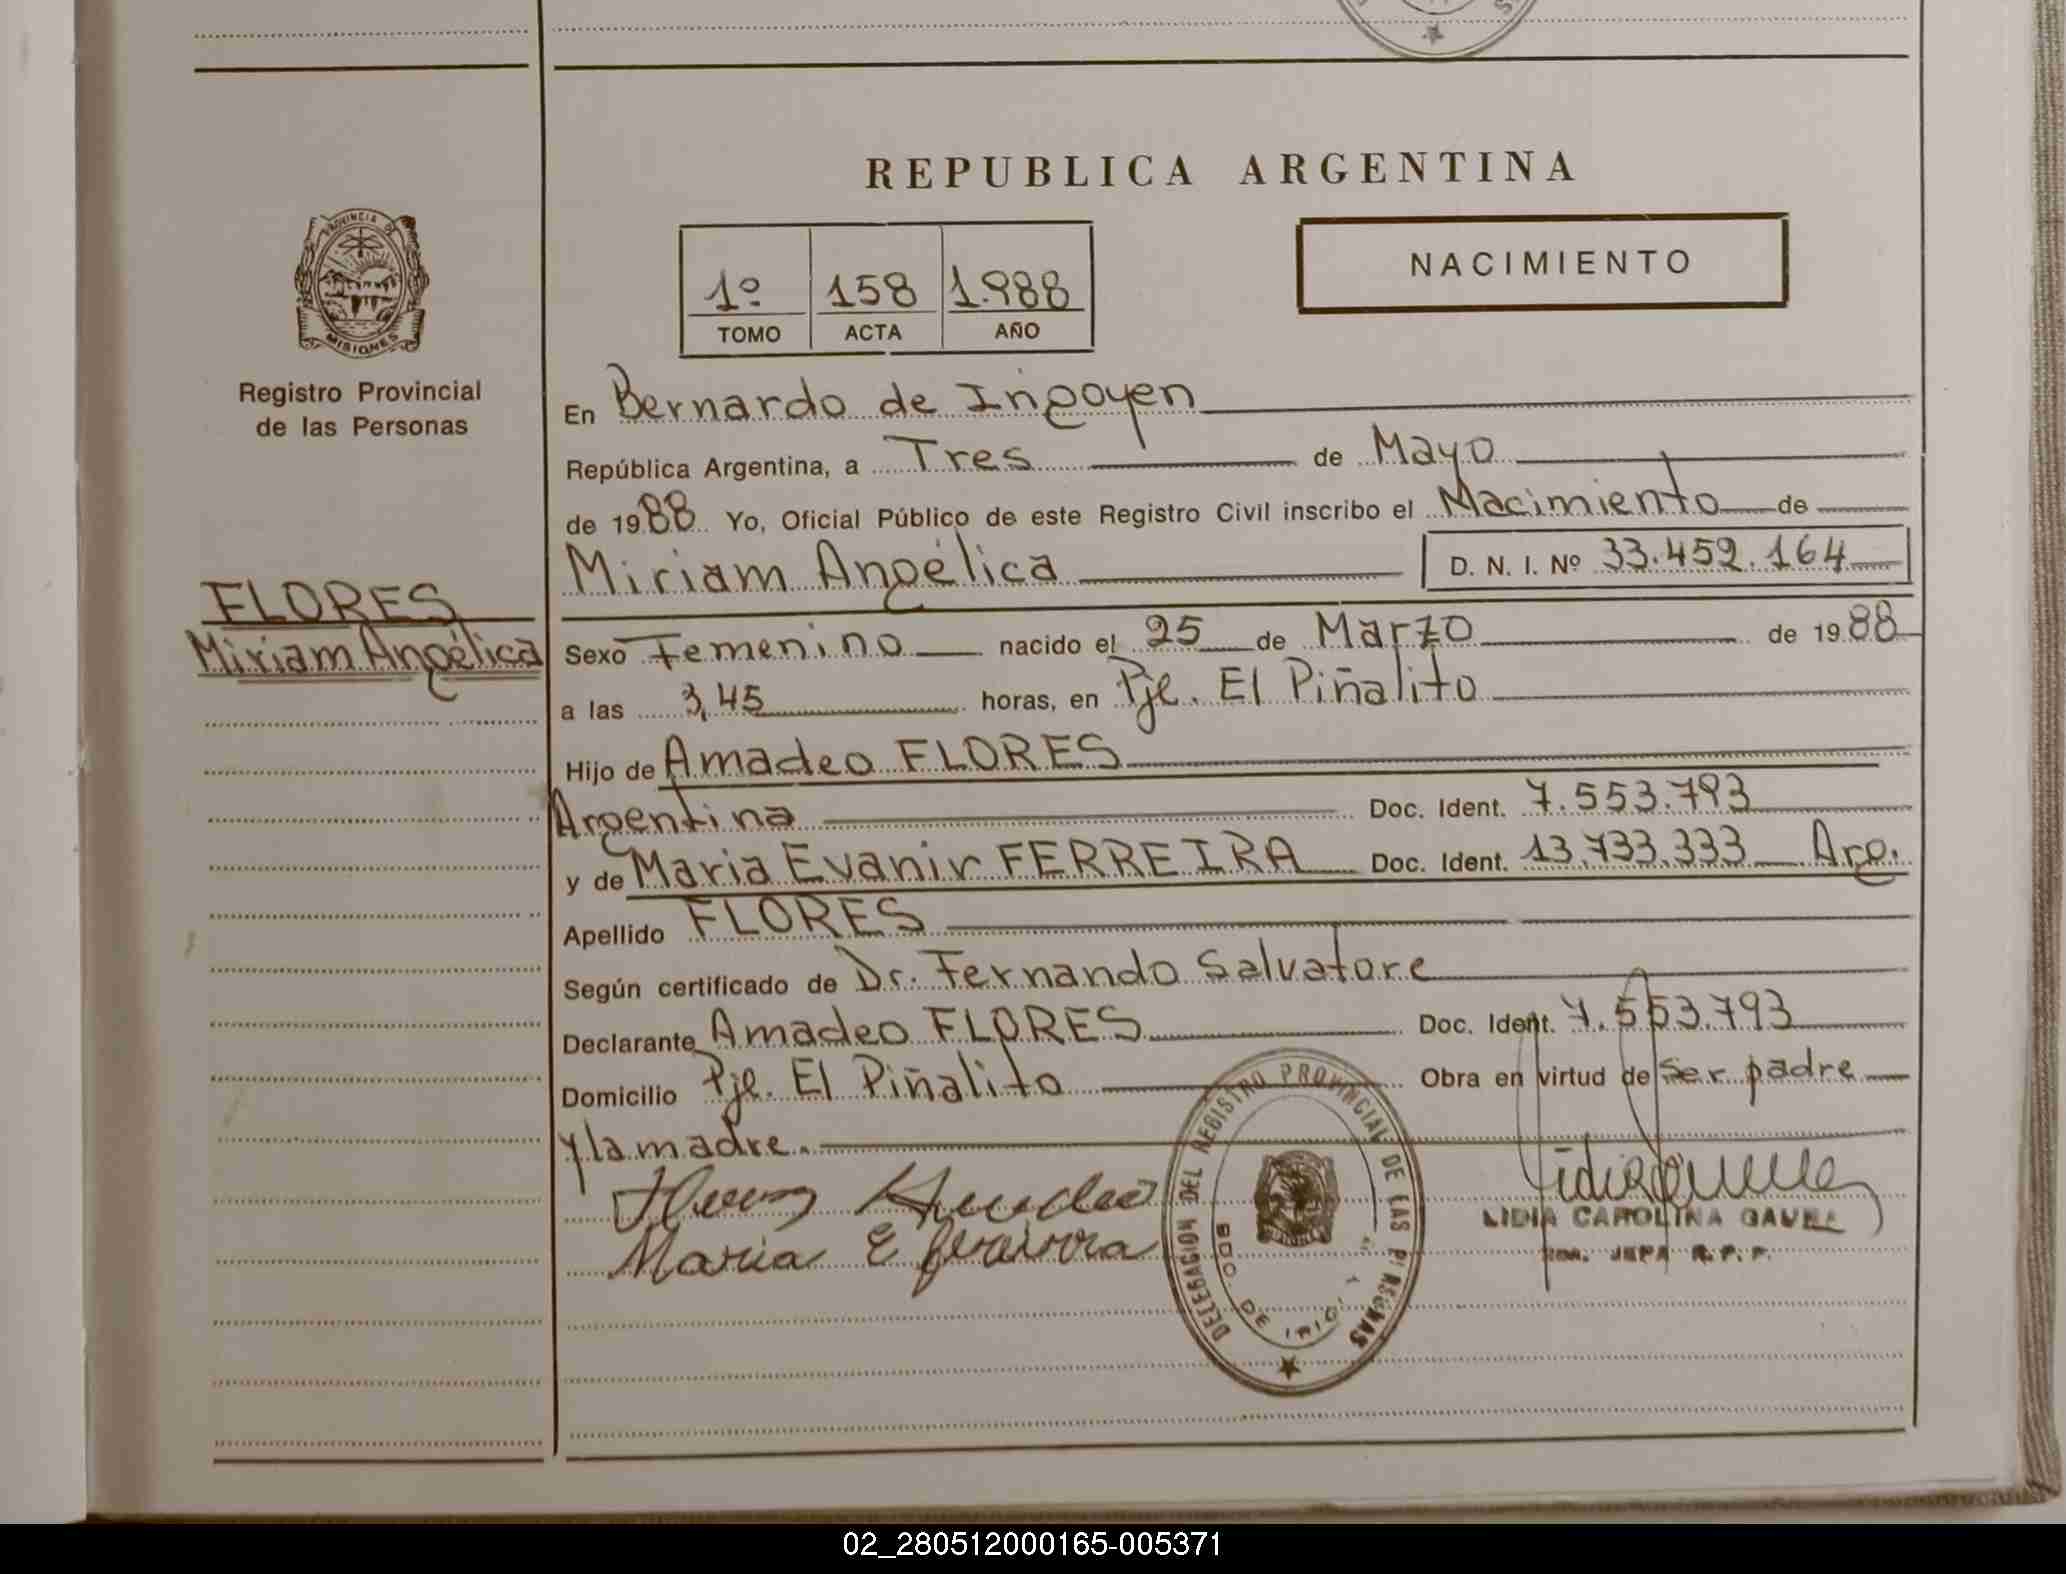 REPUBLICA ARGENTINA
NACIMIENTO
1º 158 1.988
TOMO ACTA AÑO
PROVINCIA DE
MISIONES
Registro Provincial
de las Personas
FLORES
Miriam Angélica
En Bernardo de Irigoyen
República Argentina, a Tres de Mayo
de 1988 Yo, Oficial Público de este Registro Civil inscribo el Nacimiento de
Miriam Angélica D. N. I. Nº 33.459.164
Sexo Femenino nacido el 25 de Marzo de 1988
a las 3,45 horas, en Pje. El Piñalito
Hijo de Amadeo FLORES
Argentina Doc. Ident. 7.553.793
y de Maria Evanir FERREIRA Doc. Ident. 13.733.333 Arg.
Apellido FLORES
Según certificado de Dr. Fernando Salvatore
Declarante Amadeo FLORES Doc. Ident. 7.553.793
Domicilio Pje. El Piñalito Obra en virtud de ser padre
y la madre.
Flores Amadeo
Maria E Ferreira
DELEGACION DEL REGISTRO PROVINCIAL DE LAS PERSONAS
BDO. DE IRIGOYEN
LIDIA CAROLINA
JEFA R.P.P.
02_280512000165-005371